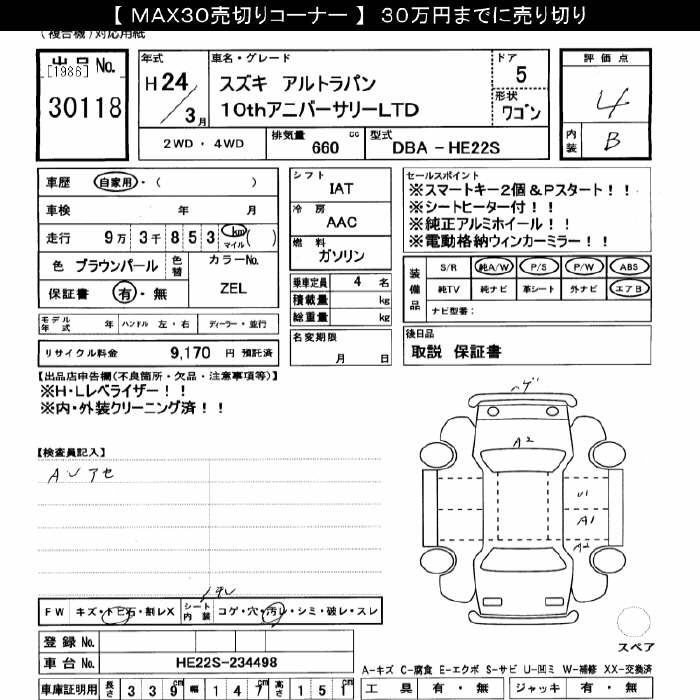 【 MAX30売切りコーナー 】 30万円までに売り切り
(複合機)対応用紙
出品No.
[1986]
30118
年式
H24/3月
車名・グレード
スズキ アルトラパン
10thアニバーサリーLTD
ドア
5
形状
ワゴン
評価点
4
内装
B
2WD・4WD
排気量
660 cc
型式
DBA-HE22S
車歴 自家用・( )
車検 年 月
走行 9万 3千 8 5 3 km マイル ( )
色 ブラウンパール
色替
カラーNo.
ZEL
保証書 有・無
シフト
IAT
冷房
AAC
燃料
ガソリン
乗車定員 4 名
積載量 kg
総重量 kg
セールスポイント
※スマートキー2個&Pスタート!!
※シートヒーター付!!
※純正アルミホイール!!
※電動格納ウィンカーミラー!!
装備品
S/R 純A/W P/S P/W ABS
純TV 純ナビ 革シート 外ナビ エアB
ナビ型番:
モデル年式 年 ハンドル 左・右 ディーラー・並行
リサイクル料金 9,170 円 預託済
名変期限
月 日
後日品
取説 保証書
【出品店申告欄(不良箇所・欠品・注意事項等)】
※H・Lレベライザー!!
※内・外装クリーニング済!!
【検査員記入】
ハゲ
A2
U1
A1
A2
FW キズ・トビ石・割レX
シート内装 コゲ・穴・汚レ・シミ・破レ・スレ
スペア
登録No.
車台No. HE22S-234498
A-キズ C-腐食 E-エクボ S-サビ U-凹ミ W-補修 XX-交換済
車庫証明用 長さ 339cm 幅 147cm 高さ 151cm
工具 有・無 ジャッキ 有・無